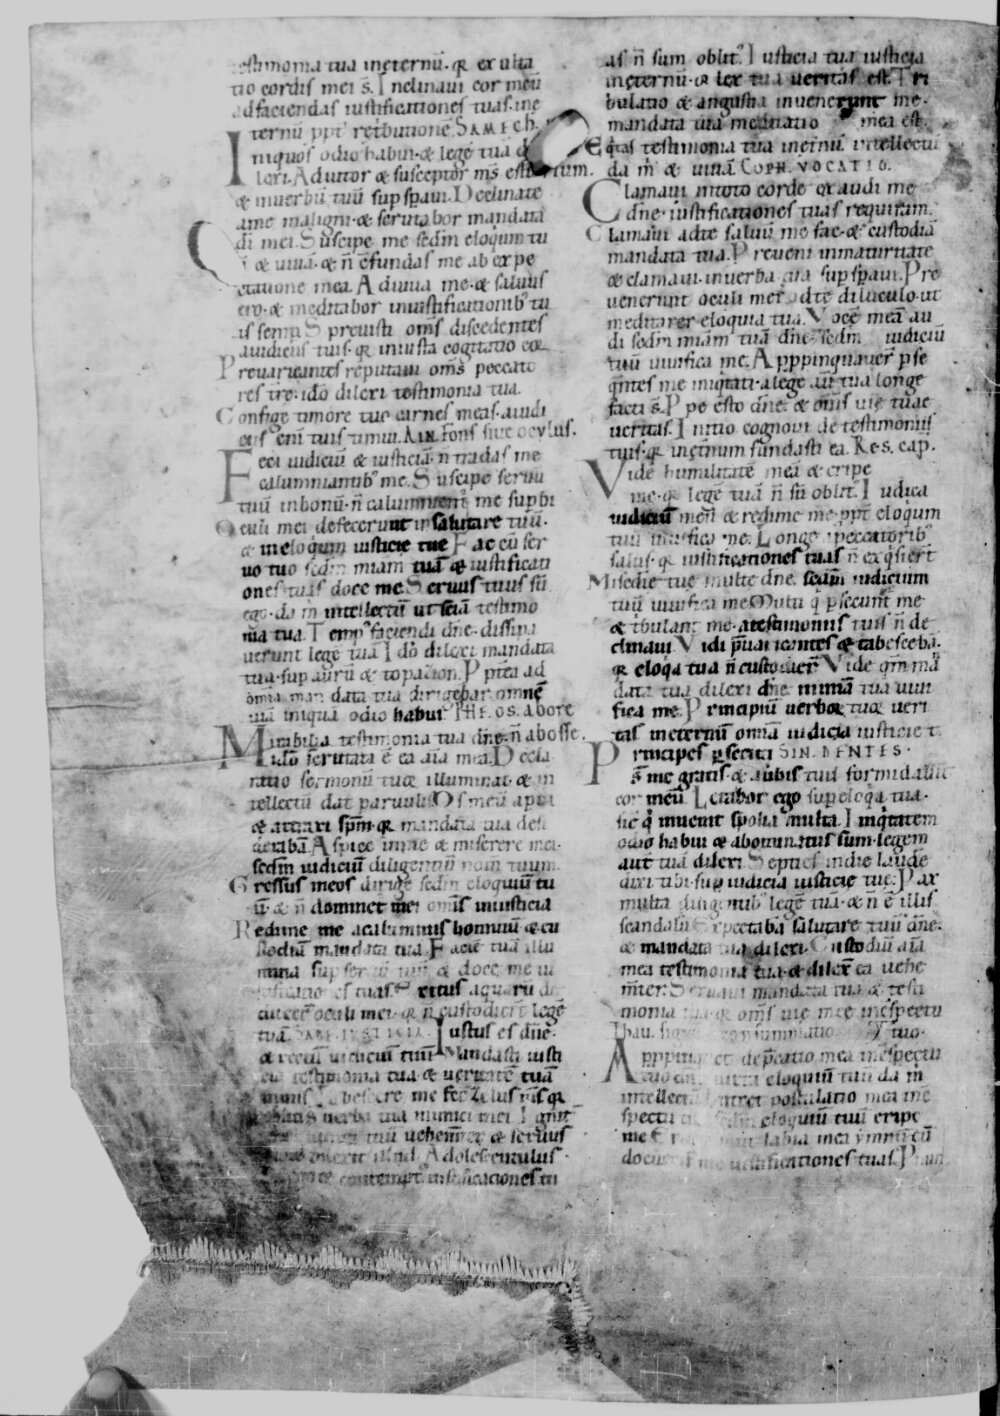 estimonia tua ineternū· qr exulta
tio cordis mei s̄. Inclinaui cor meū
adfaciendas iustificationes tuas· ine
ternū ppt̄ retributionē. SAMECh.
Iniquos odio habui· & legē tuā d
lexi. Adiutor & susceptor ms̄ es tu
& inuerbū tuū supspaui. Declinate
ame maligni· & scrutabor mandata
di mei. Suscipe me sedm̄ eloquiū tu
ū & uiuā· & n̄ c̄fundas me abexpe
ctatione mea. Adiuua me· & saluus
ero· & meditabor iniustificationib' tu
is semp. Spreuisti oms̄ discedentes
aiudiciis tuis· qr iniusta cogitatio eoꝝ
Preuaricantes reputaui oms̄ peccato
res tr̄e· ido dilexi testimonia tua.
Confige timore tuo carnes meas· aiudi
ciis eni tuis timui. AIN. Fons siue oculus.
Feci iudiciū & iusticiā· n̄ tradas me
calumniantib' me. Suscipe seruū
tuū inbonū· n̄ calumnient' me supbi
Oculi mei defecerunt in salutare tuū·
& ineloquiū iusticie tue Fac cū ser
uo tuo sedm̄ miam tuā & iustificati
ones tuas doce me. Seruus tuus sū
ego· da m̄ intellectū ut sciā testimo
nia tua. Temp' faciendi dn̄e· dissipa
uerunt legē tuā Ido dilexi mandata
tua· sup aurū & topacion. Pptea ad
omia mandata tua dirigebar· omnē
uiā iniquā odio habui PHE. OS. abore
Mirabilia testimonia tua dn̄e· n̄ abosse.
ido scrutata ē ea aia mea. Decla
ratio sermonū tuoꝝ illuminat· & in
tellectū dat paruulis Os meū apui
& attraxi spm̄· qr mandata tua desi
derabā. Aspice inme & miserere mei·
sedm̄ iudiciū diligentiū nom̄ tuum
Gressus meos dirige sedm̄ eloquiū tu
ū· & n̄ dominet mei omis iniusticia
Redime me acalumniis hominū & cu
stodiā mandata tua. Faciē tuā illu
mina sup seruū tuū & doce me iu
stificationes tuas. Exitus aquarū de
duxer̄ oculi mei· qr n̄ custodier̄ legē
tuā. Iustus es dn̄e·
& rectū iudiciū tuū Mandasti iusti
ciā testimonia tua & ueritatē tuā
nimis Tabescere me fec̄ zelus ms̄ qr
obliti s̄ uerba tua inimici mei. Ignit'
tuū uehemt̄er & seruus
dilexit illud. Adolescentulus
contempt' iustificationes tu
as n̄ sum oblit'. Iusticia tua iusticia
ineternū· & lex tua ueritas est. Tri
bulatio & angustia inuenerunt me·
mandata tua meditatio mea est.
Eqtas testimonia tua ineternū· intellectū
da m̄ & uiuā. COPH. VOCATIO.
Clamaui intoto corde exaudi me
dn̄e· iustificationes tuas requiram.
Clamaui adte saluū me fac· & custodiā
mandata tua. Preueni inmaturitate
& clamaui· inuerba tua supspaui. Pre
uenerunt oculi mei adte diluculo· ut
meditarer eloquia tua. Vocē meā au
di sedm̄ miam tuā dn̄e· sedm̄ iudiciū
tuū uiuifica me. Appinquauer̄ pse
qn̄tes me iniqtati· alege aū tua longe
facti s̄. Ppe esto dn̄e· & oms̄ uie tuae
ueritas. Initio cognoui de testimoniis
tuis· qr ineternum fundasti ea. Res. cap.
Vide humilitatē meā & eripe
me· qr legē tuā n̄ sū oblit'. Iudica
iudiciū meū & redime me· ppt̄ eloquim
tuū uiuifica me. Longe apeccatorib'
salus· qr iustificationes tuas n̄ exqsier̄t
Misedie tue multe dn̄e· sedm̄ iudicium
tuū uiuifica me Multi q̄ psecunt̄ me
& tbulant me· atestimoniis tuis n̄ de
clinaui. Vidi p̄uaricantes & tabescebā.
qr eloqa tua n̄ custodier̄ Vide qm̄ mā
data tua dilexi dn̄e· inmiā tua uiui
fica me. Principiū uerboꝝ tuoꝝ ueri
tas ineternum omia iudicia iusticie t
Principes psecuti SIN. DENTES·
s̄ me gratis· & auerbis tuis formidauit
cor meū. Letabor ego sup eloqa tua·
sic q̄ inuenit spolia multa. Iniqtatem
odio habui & abominatus sum· legem
aut̄ tuā dilexi. Septies indie laudē
dixi tibi· sup iudicia iusticie tue. Pax
multa diligentib' legē tuā· & n̄ ē illis
scandalū. Expectabā salutare tuū dn̄e·
& mandata tua dilexi. Custodiū aīa
mea testimonia tua· & dilex̄ ea uehe
m̄ter. Seruaui mandata tua & testi
monia tua· qr oms̄ uie mee inc̄spectu
Thau. signa consummatio tuo.
Appinqet dep̄catio mea inc̄spectu
tuo dn̄e iuxta eloquiū tuū da m̄
intellectū. Intret postulatio mea inc̄
spectu tuo sedm̄ eloquiū tuū eripe
me Eructabunt labia mea ymnū cū
docueris me iustificationes tuas. Pnun